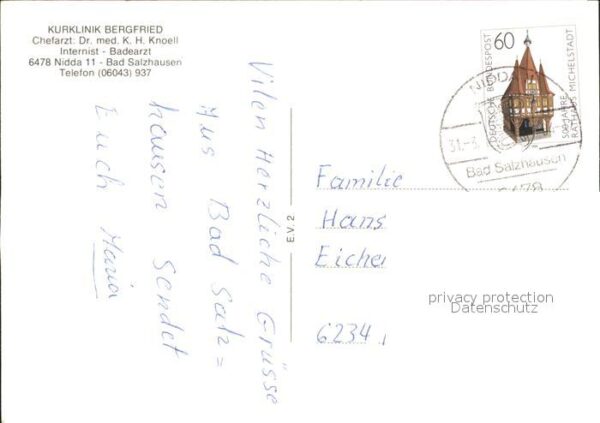 KURKLINIK BERGFRIED
Chefarzt: Dr. med. K. H. Knoell
Internist - Badearzt
6478 Nidda 11 - Bad Salzhausen
Telefon (06043) 937
Vilen Herzliche Grüsse
Aus Bad Salz=
hausen sendet
Euch Maria
E.V. 2
60
DEUTSCHE BUNDESPOST
500 JAHRE
RATHAUS MICHELSTADT
NIDDA
31.-3.
Bad Salzhausen
6478
Familie
Hans
Eichel
6234
privacy protection
Datenschutz